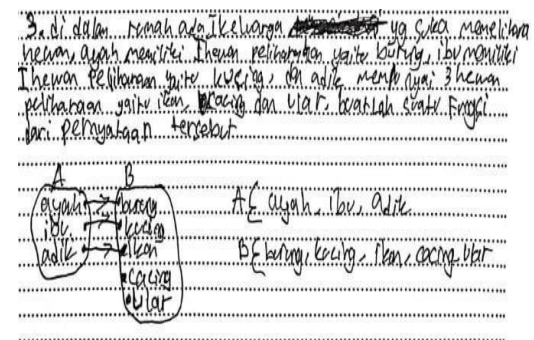 3. di dalam rumah ada 1 keluarga yg suka memelihara
hewan, ayah memiliki 1 hewan peliharaan yaitu burung, ibu memiliki
1 hewan peliharaan yaitu kucing, dan adik mempunyai 3 hewan
peliharaan yaitu ikan, cacing dan ular, buatlah suatu Fungsi
dari pernyataan tersebut
A B
ayah burung A { ayah, ibu, adik
ibu kucing
adik ikan B { burung, kucing, ikan, cacing, ular
cacing
ular